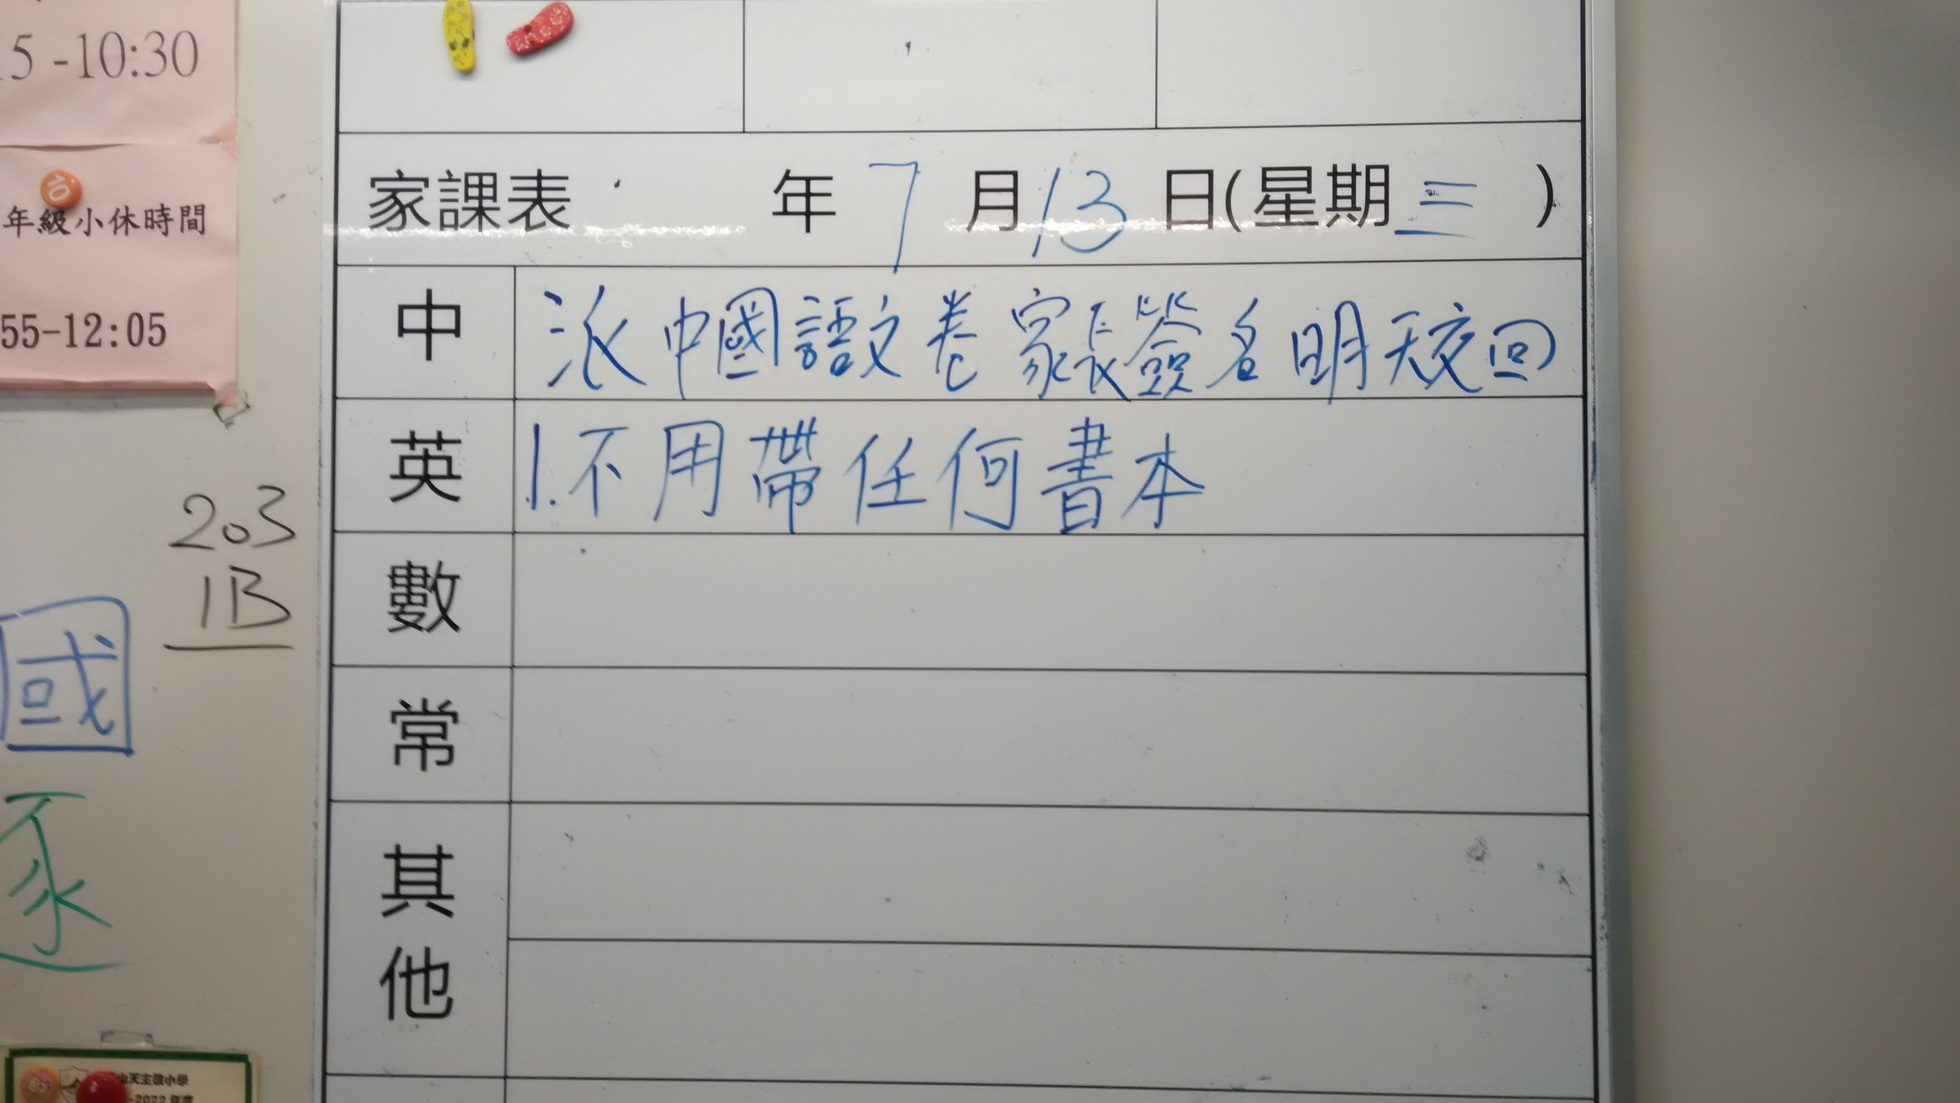 5 -10:30
年級小休時間
55-12:05
203
1B
國
逐
家課表 年 7 月 13 日(星期 三 )
中 派中國語文卷家長簽名明天交回
英 1.不用帶任何書本
數
常
其他
山天主教小學
-2022 年度